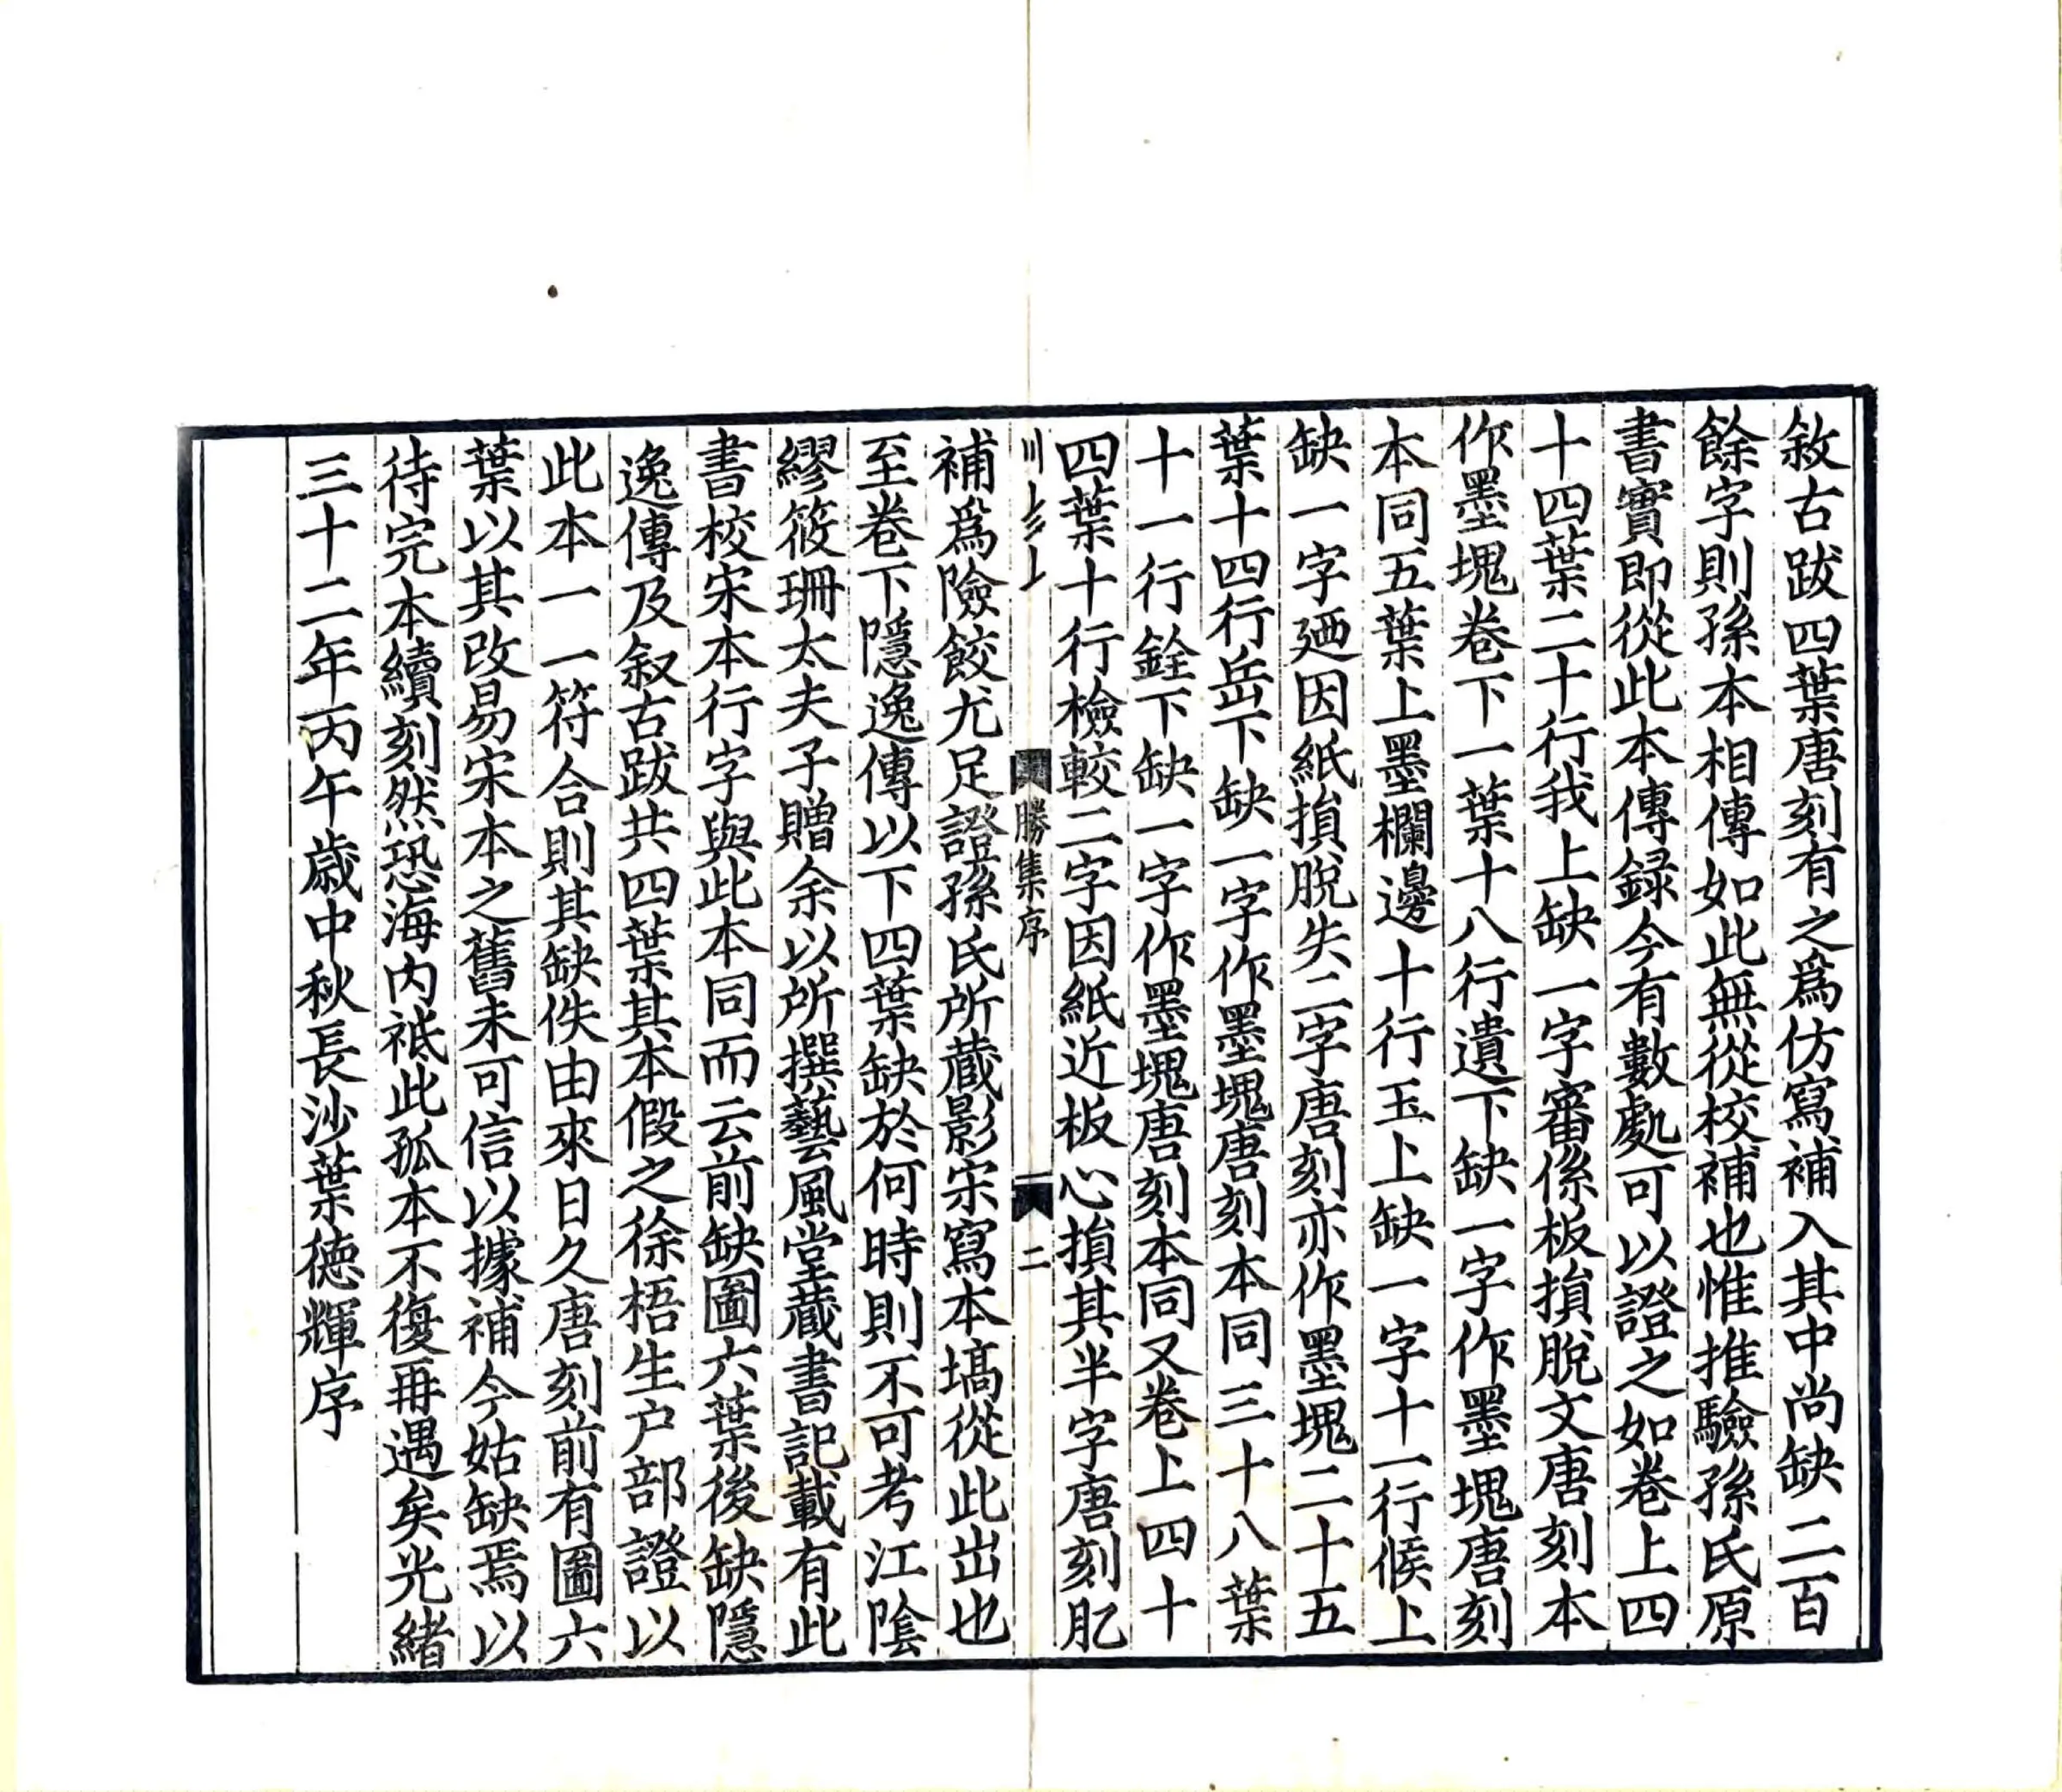 敘古跋四葉唐刻有之爲仿寫補入其中尚缺二百
餘字則孫本相傳如此無從校補也惟推驗孫氏原
書實即從此本傳録今有數處可以證之如卷上四
十四葉二十行我上缺一字審係板損脫文唐刻本
作墨塊卷下一葉十八行遺下缺一字作墨塊唐刻
本同五葉上墨欄邊十行玉上缺一字十一行候上
缺一字廼因紙損脫失二字唐刻亦作墨塊二十五
葉十四行岳下缺一字作墨塊唐刻本同三十八葉
十一行銓下缺一字作墨塊唐刻本同又卷上四十
四葉十行檢較二字因紙近板心損其半字唐刻肊
勝集序
二
補爲險餃尤足證孫氏所藏影宋寫本塙從此出也
至卷下隱逸傳以下四葉缺於何時則不可考江陰
繆筱珊太夫子贈余以所撰藝風堂藏書記載有此
書校宋本行字與此本同而云前缺圖六葉後缺隱
逸傳及叙古跋共四葉其本假之徐梧生户部證以
此本一一符合則其缺佚由來日久唐刻前有圖六
葉以其改易宋本之舊未可信以據補今姑缺焉以
待完本續刻然恐海内祗此孤本不復再遇矣光緒
三十二年丙午歲中秋長沙葉德輝序